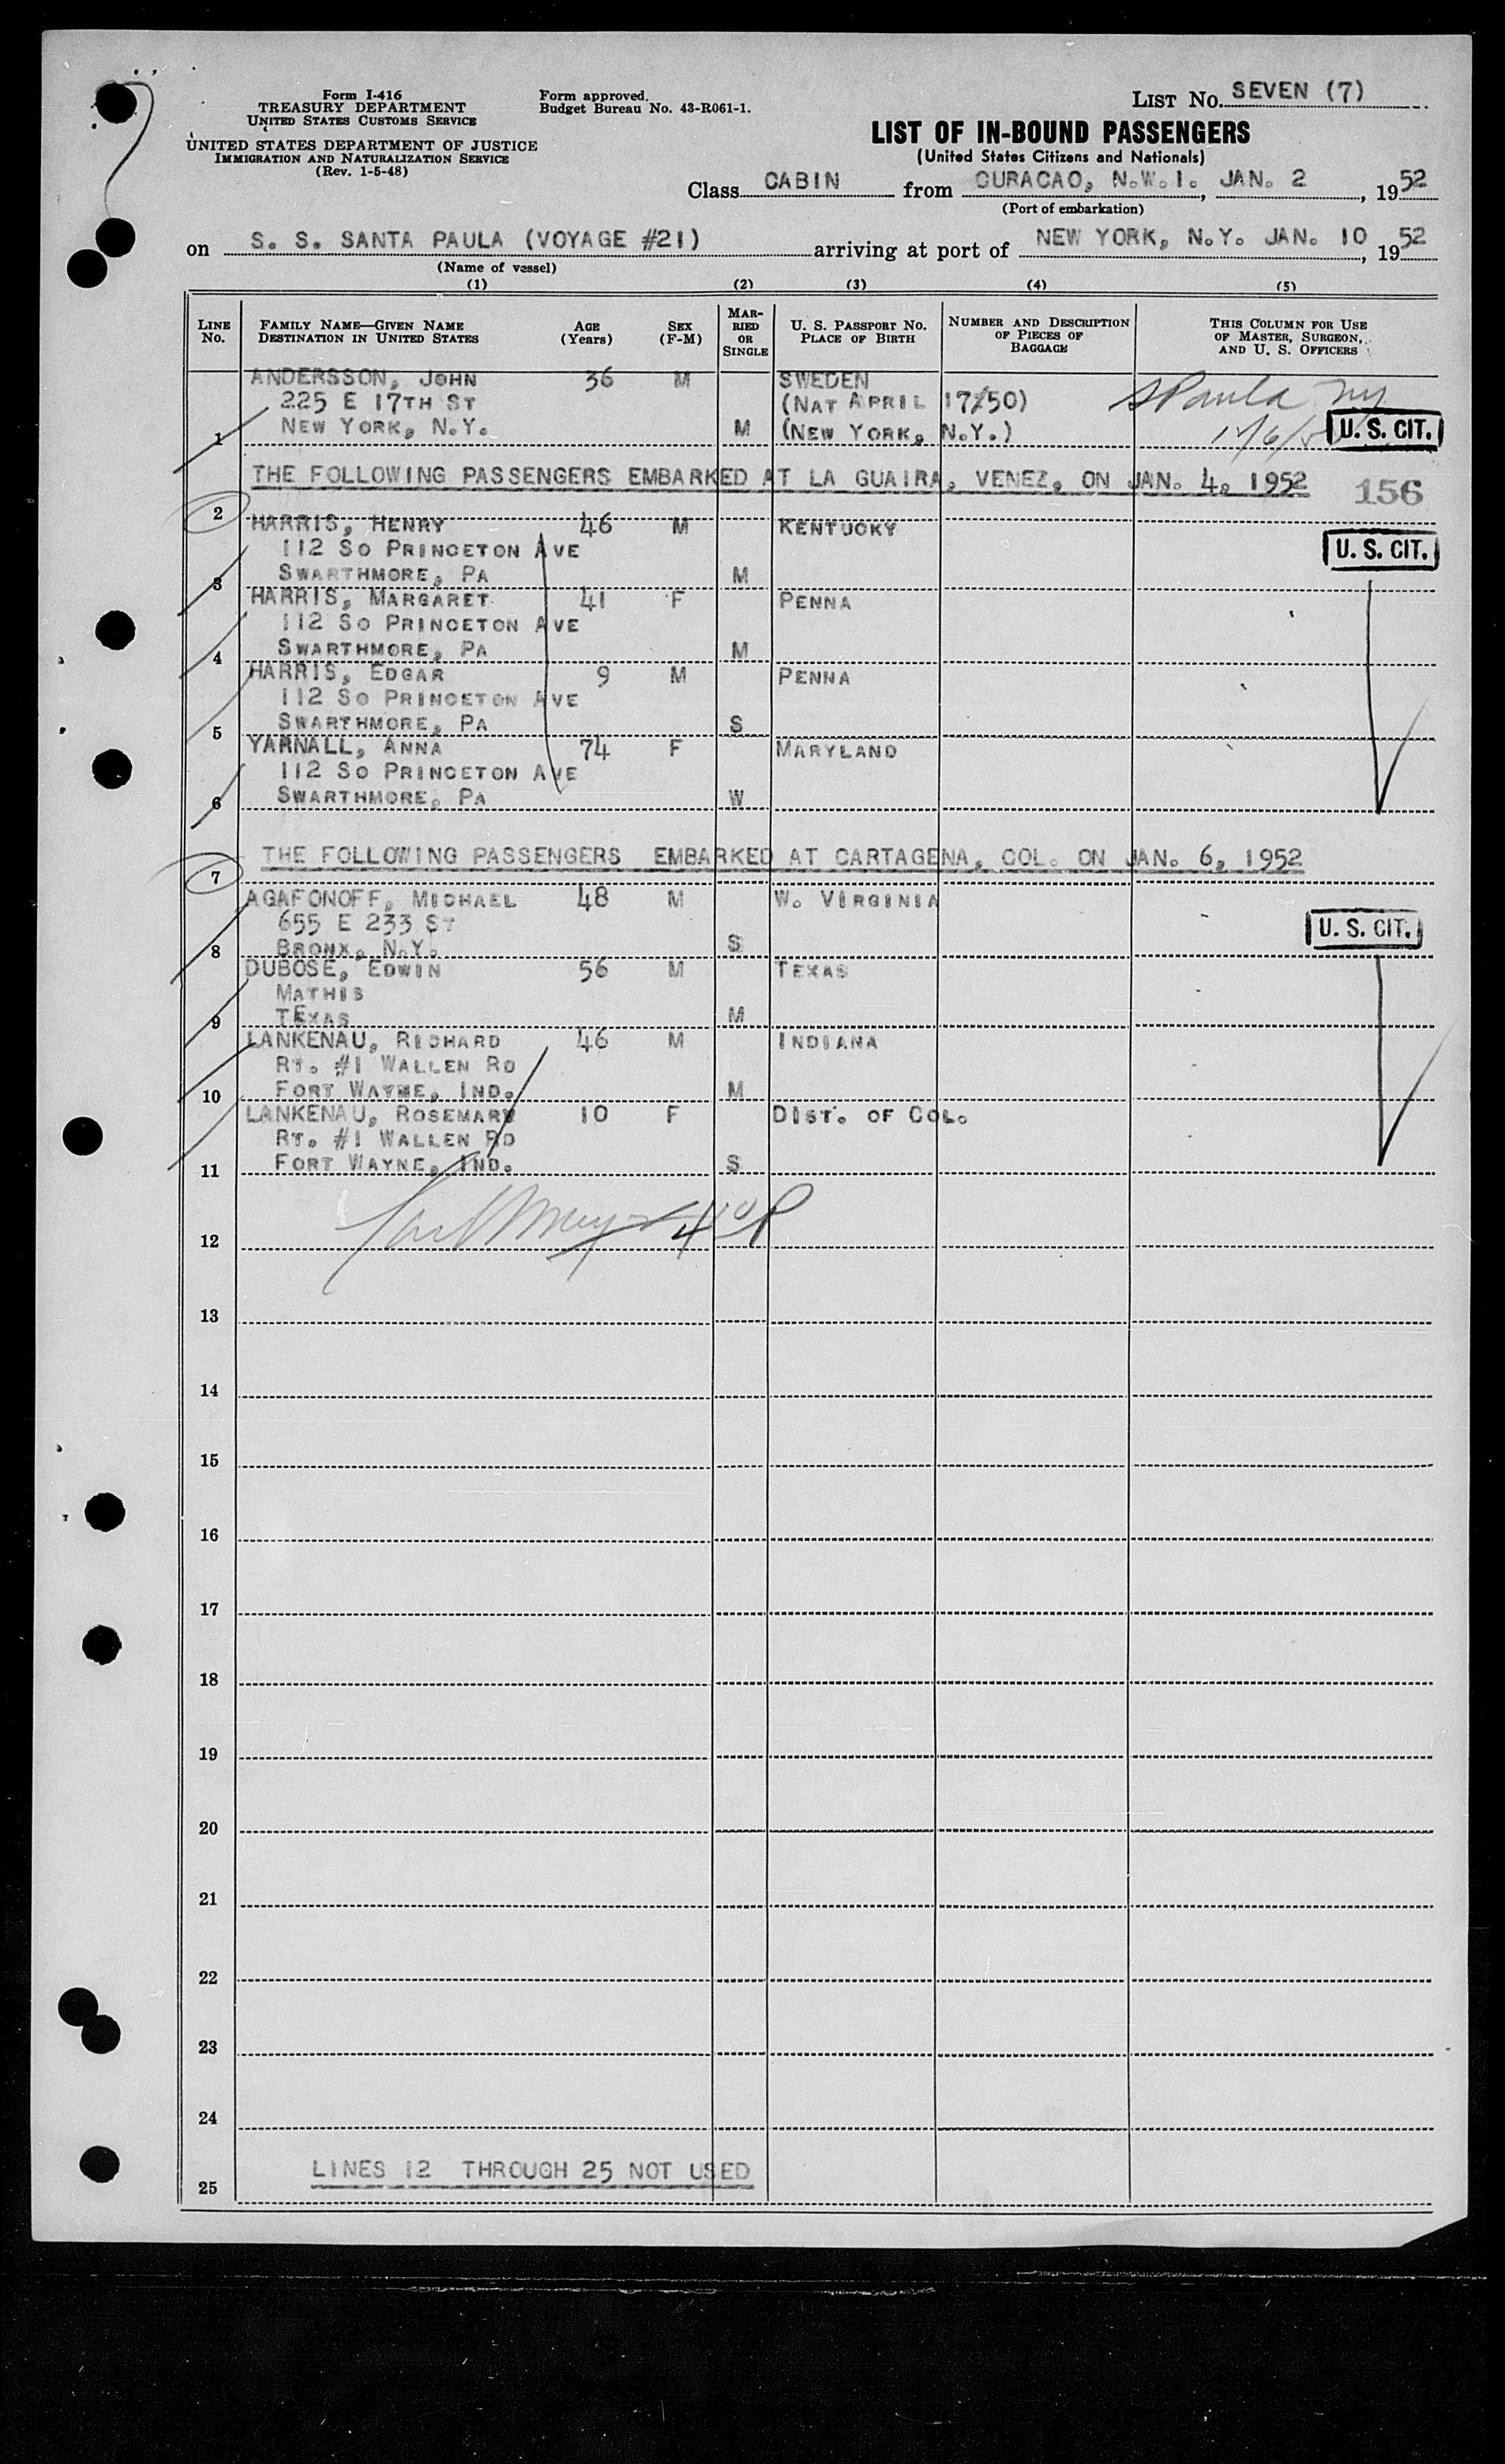 Form I-416
TREASURY DEPARTMENT
UNITED STATES CUSTOMS SERVICE
UNITED STATES DEPARTMENT OF JUSTICE
IMMIGRATION AND NATURALIZATION SERVICE
(Rev. 1-5-48)
Form approved.
Budget Bureau No. 43-R061-1.
LIST No. SEVEN (7)
LIST OF IN-BOUND PASSENGERS
(United States Citizens and Nationals)
Class CABIN from CURACAO, N.W.I., JAN. 2, 1952
(Port of embarkation)
on S. S. SANTA PAULA (VOYAGE #21) arriving at port of NEW YORK, N.Y. JAN. 10, 1952
(Name of vessel)
(1) (2) (3) (4) (5)
LINE No. FAMILY NAME—GIVEN NAME DESTINATION IN UNITED STATES AGE (Years) SEX (F-M) MARRIED OR SINGLE U. S. PASSPORT NO. PLACE OF BIRTH NUMBER AND DESCRIPTION OF PIECES OF BAGGAGE THIS COLUMN FOR USE OF MASTER, SURGEON, AND U. S. OFFICERS
ANDERSSON, JOHN 36 M SWEDEN
225 E 17TH ST (NAT APRIL 17/50) SPaula NY
1 NEW YORK, N.Y. M (NEW YORK, N.Y.) U. S. CIT.
THE FOLLOWING PASSENGERS EMBARKED AT LA GUAIRA, VENEZ, ON JAN. 4, 1952 156
2
HARRIS, HENRY 46 M KENTUCKY
112 SO PRINCETON AVE U. S. CIT.
3 SWARTHMORE, PA M
HARRIS, MARGARET 41 F PENNA
112 SO PRINCETON AVE
4 SWARTHMORE, PA M
HARRIS, EDGAR 9 M PENNA
112 SO PRINCETON AVE
5 SWARTHMORE, PA S
YARNALL, ANNA 74 F MARYLAND
112 SO PRINCETON AVE
6 SWARTHMORE, PA W
THE FOLLOWING PASSENGERS EMBARKED AT CARTAGENA, COL. ON JAN. 6, 1952
7
AGAFONOFF, MICHAEL 48 M W. VIRGINIA
655 E 233 ST U. S. CIT.
8 BRONX, N.Y. S
DUBOSE, EDWIN 56 M TEXAS
MATHIS
9 TEXAS M
LANKENAU, RICHARD 46 M INDIANA
RT. #1 WALLEN RD
10 FORT WAYNE, IND. M
LANKENAU, ROSEMARY 10 F DIST. OF COL.
RT. #1 WALLEN RD
11 FORT WAYNE, IND. S
12
13
14
15
16
17
18
19
20
21
22
23
24
25 LINES 12 THROUGH 25 NOT USED